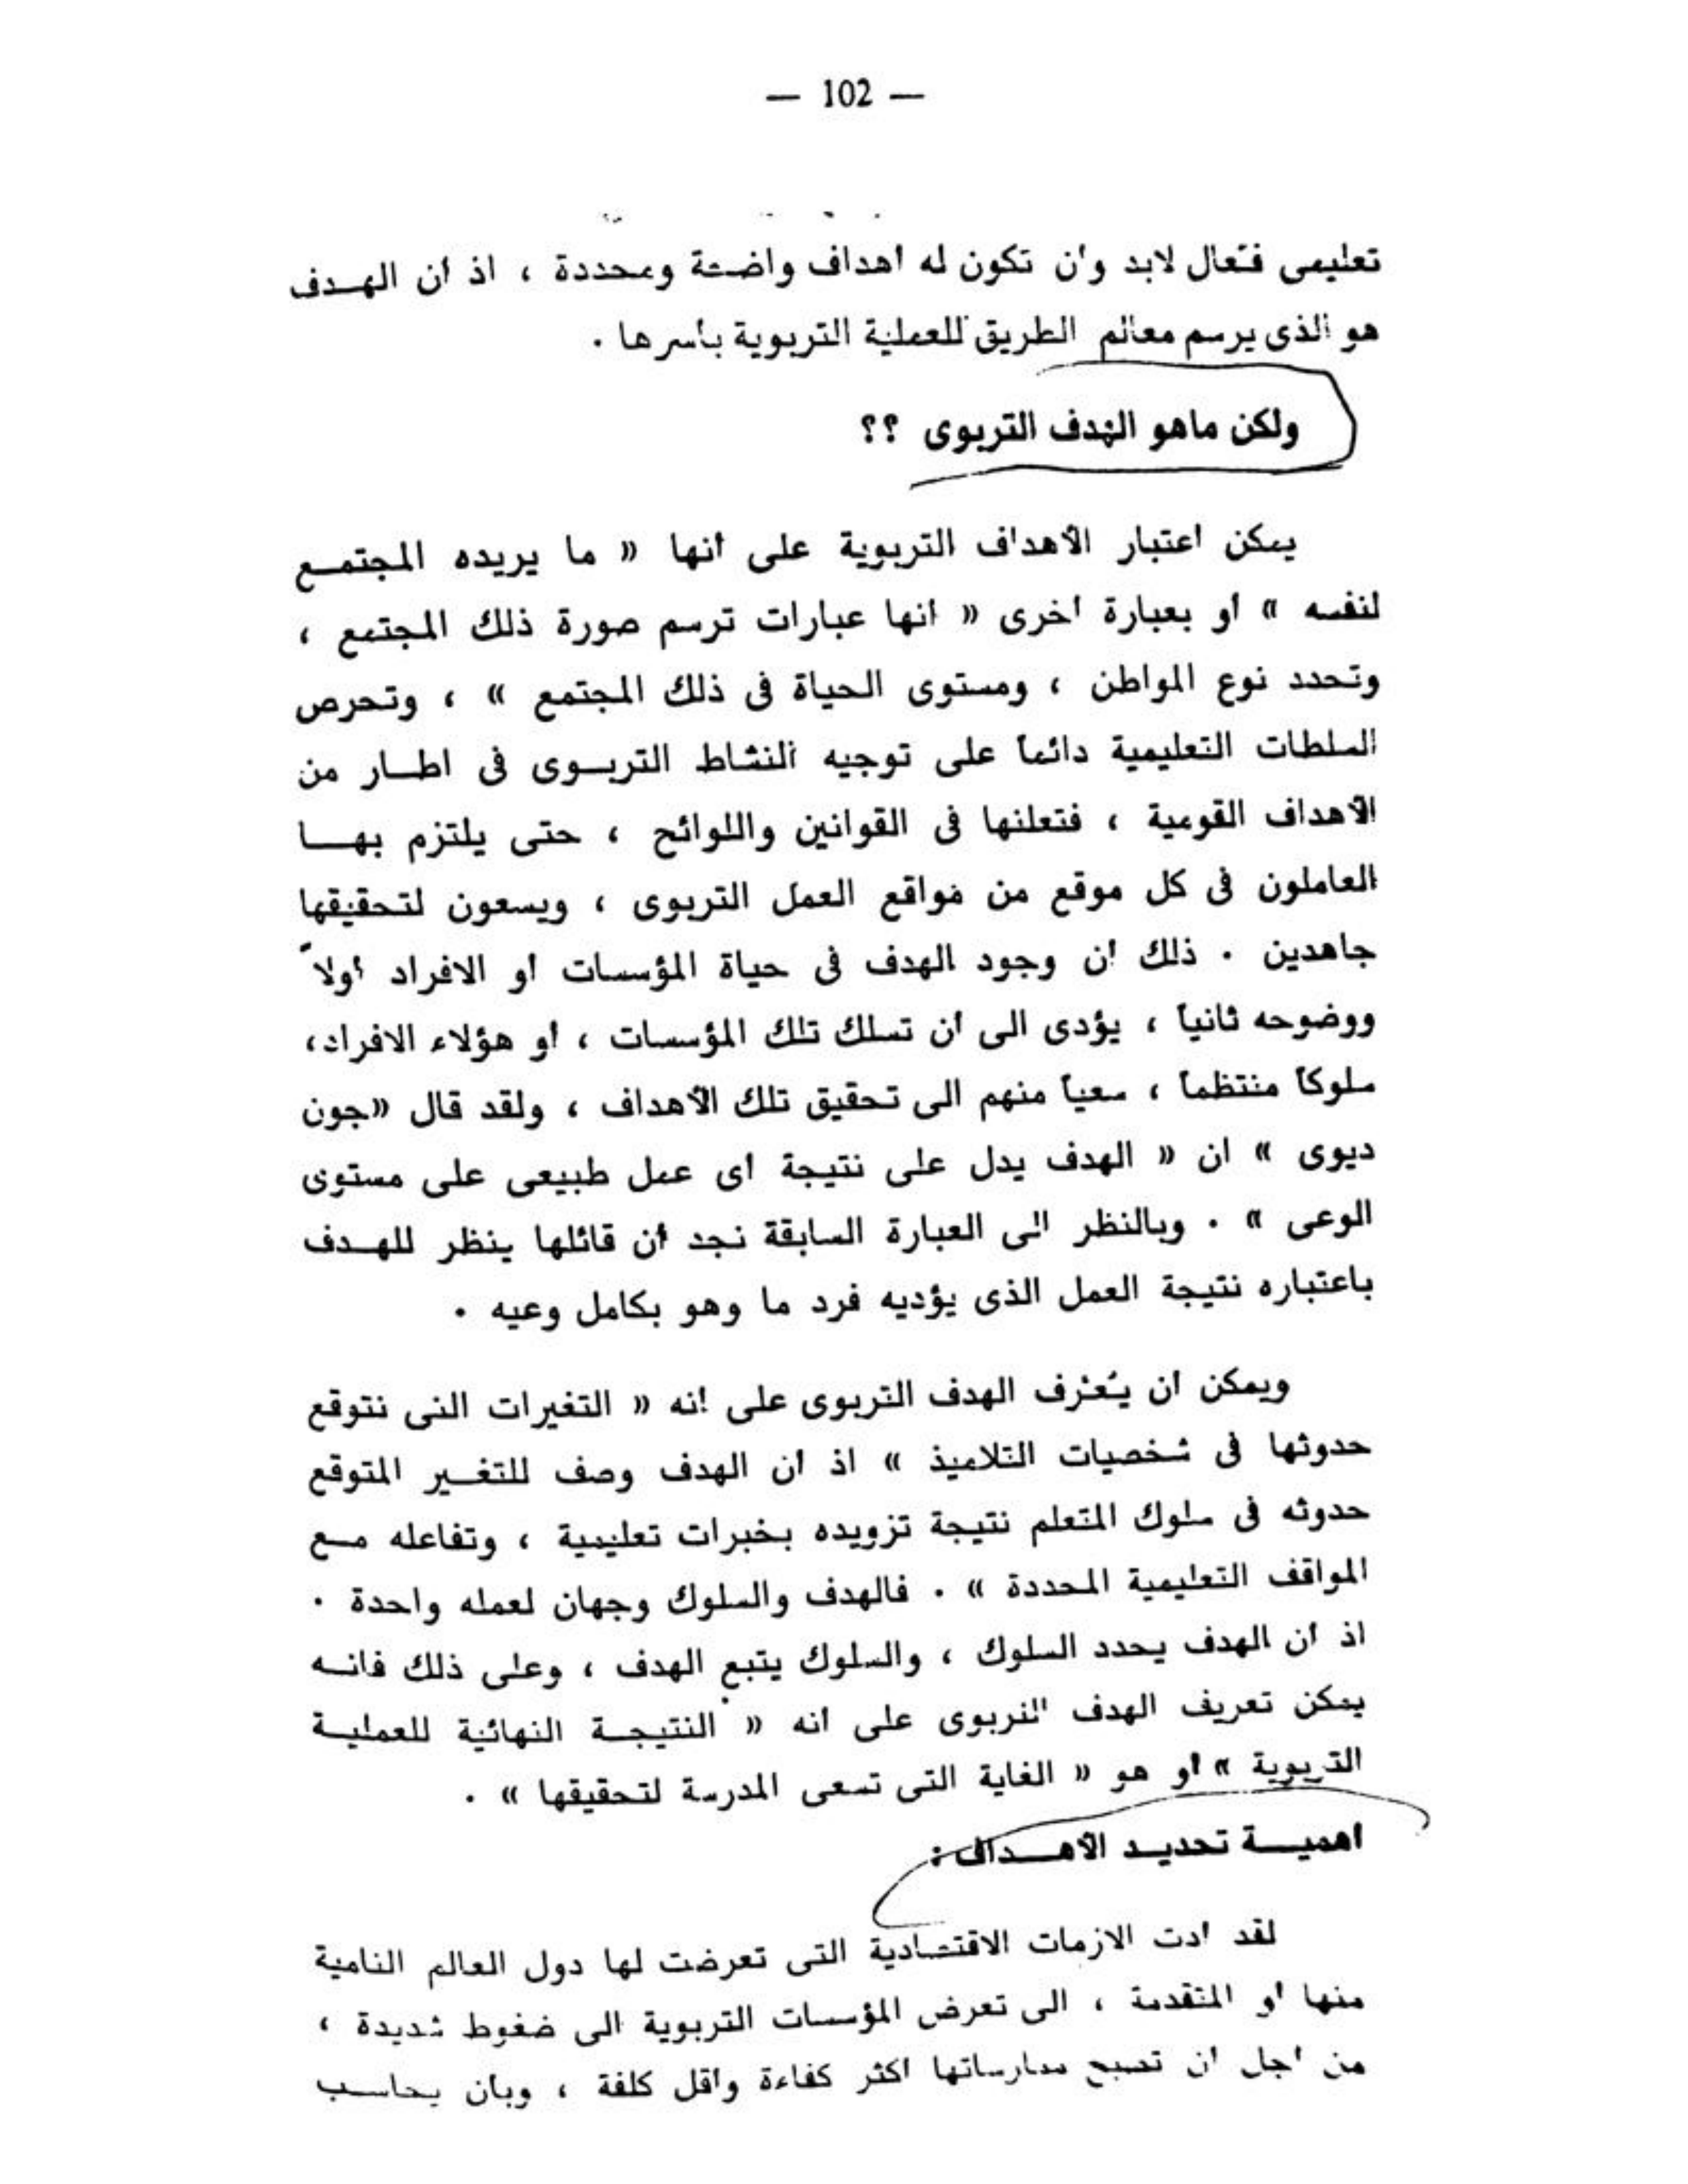 — 102 —
تعليمى فعّال لابد وأن تكون له أهداف واضحة ومحددة ، اذ أن الهدف
هو الذى يرسم معالم الطريق للعملية التربوية بأسرها .
ولكن ماهو الهدف التربوى ؟؟
يمكن اعتبار الأهداف التربوية على أنها « ما يريده المجتمع
لنفسه » أو بعبارة أخرى « انها عبارات ترسم صورة ذلك المجتمع ،
وتحدد نوع المواطن ، ومستوى الحياة فى ذلك المجتمع » ، وتحرص
السلطات التعليمية دائماً على توجيه النشاط التربوى فى اطار من
الأهداف القومية ، فتعلنها فى القوانين واللوائح ، حتى يلتزم بها
العاملون فى كل موقع من مواقع العمل التربوى ، ويسعون لتحقيقها
جاهدين . ذلك أن وجود الهدف فى حياة المؤسسات أو الافراد أولاً
ووضوحه ثانياً ، يؤدى الى أن تسلك تلك المؤسسات ، أو هؤلاء الافراد،
سلوكاً منتظماً ، سعياً منهم الى تحقيق تلك الأهداف ، ولقد قال «جون
ديوى » ان « الهدف يدل على نتيجة أى عمل طبيعى على مستوى
الوعى » . وبالنظر الى العبارة السابقة نجد أن قائلها ينظر للهدف
باعتباره نتيجة العمل الذى يؤديه فرد ما وهو بكامل وعيه .
ويمكن أن يُعرف الهدف التربوى على أنه « التغيرات التى نتوقع
حدوثها فى شخصيات التلاميذ » اذ أن الهدف وصف للتغير المتوقع
حدوثه فى سلوك المتعلم نتيجة تزويده بخبرات تعليمية ، وتفاعله مع
المواقف التعليمية المحددة » . فالهدف والسلوك وجهان لعمله واحدة .
اذ أن الهدف يحدد السلوك ، والسلوك يتبع الهدف ، وعلى ذلك فانه
يمكن تعريف الهدف التربوى على أنه « النتيجة النهائية للعملية
التربوية » أو هو « الغاية التى تسعى المدرسة لتحقيقها » .
أهمية تحديد الأهداف :
لقد أدت الازمات الاقتصادية التى تعرضت لها دول العالم النامية
منها أو المتقدمة ، الى تعرض المؤسسات التربوية الى ضغوط شديدة ،
من أجل أن تصبح ممارساتها أكثر كفاءة وأقل كلفة ، وبأن يحاسب